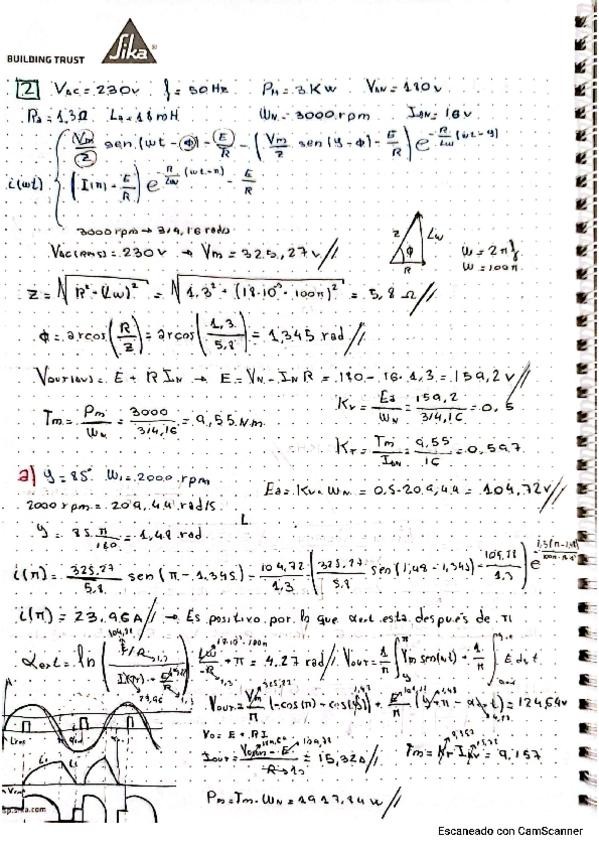 BUILDING TRUST
Sika®
2 VAC = 230V f = 50Hz Pm = 3KW VaN = 180V
Ra = 1,3Ω La = 18mH WN = 3000rpm IaN = 16V
i(wt) { Vm/Z sen(wt - φ) - E/R - (Vm/Z sen(y - φ) - E/R) e^(-R/Lw (wt-y))
(I(π) + E/R) e^(-R/Lw (wt-π)) - E/R
3000rpm → 314,16 rad/s
Z Lw φ R
W = 2πf
W = 100π
VAC(RMS) = 230V → Vm = 325,27V //
Z = √(R² + (Lw)²) = √(1,3² + (18·10⁻³·100π)²) = 5,8 Ω //
φ = arcos(R/Z) = arcos(1,3/5,8) = 1,345 rad //
E + R IN → E = VN - IN R = 180 - 16·1,3 = 159,2V //
Kv = Ea/WN = 159,2/314,16 = 0,5
Tm = Pm/WN = 3000/314,16 = 9,55 N.m
KT = Tm/IaN = 9,55/16 = 0,597
a) y = 85° W1 = 2000 rpm
2000 rpm = 209,44 rad/s
Ea = Kv·WN = 0,5·209,44 = 104,72V //
y = 85 π/180 = 1,48 rad
i(π) = 325,27/5,8 sen(π - 1,345) - 104,72/1,3 - (325,27/5,8 sen(1,48 - 1,345) - 104,72/1,3) e
i(π) = 23,96A // → Es positivo por lo que αext esta después de π
αext = ln(E/R / I(π) + E/R) · Lw/-R + π = 4,27 rad // Vout = 1/π ∫ Vm sen(wt) + 1/π ∫ E dwt
Vout = Vm/π (-cos(π) + cos(y)) + E/π (y + π - αext) = 124,64V
Vo = E + RI
Iout = = 15,32A //
Tm = KT IaN = 9,157
Pm = Tm·WN = 1917,84W //
Escaneado con CamScanner